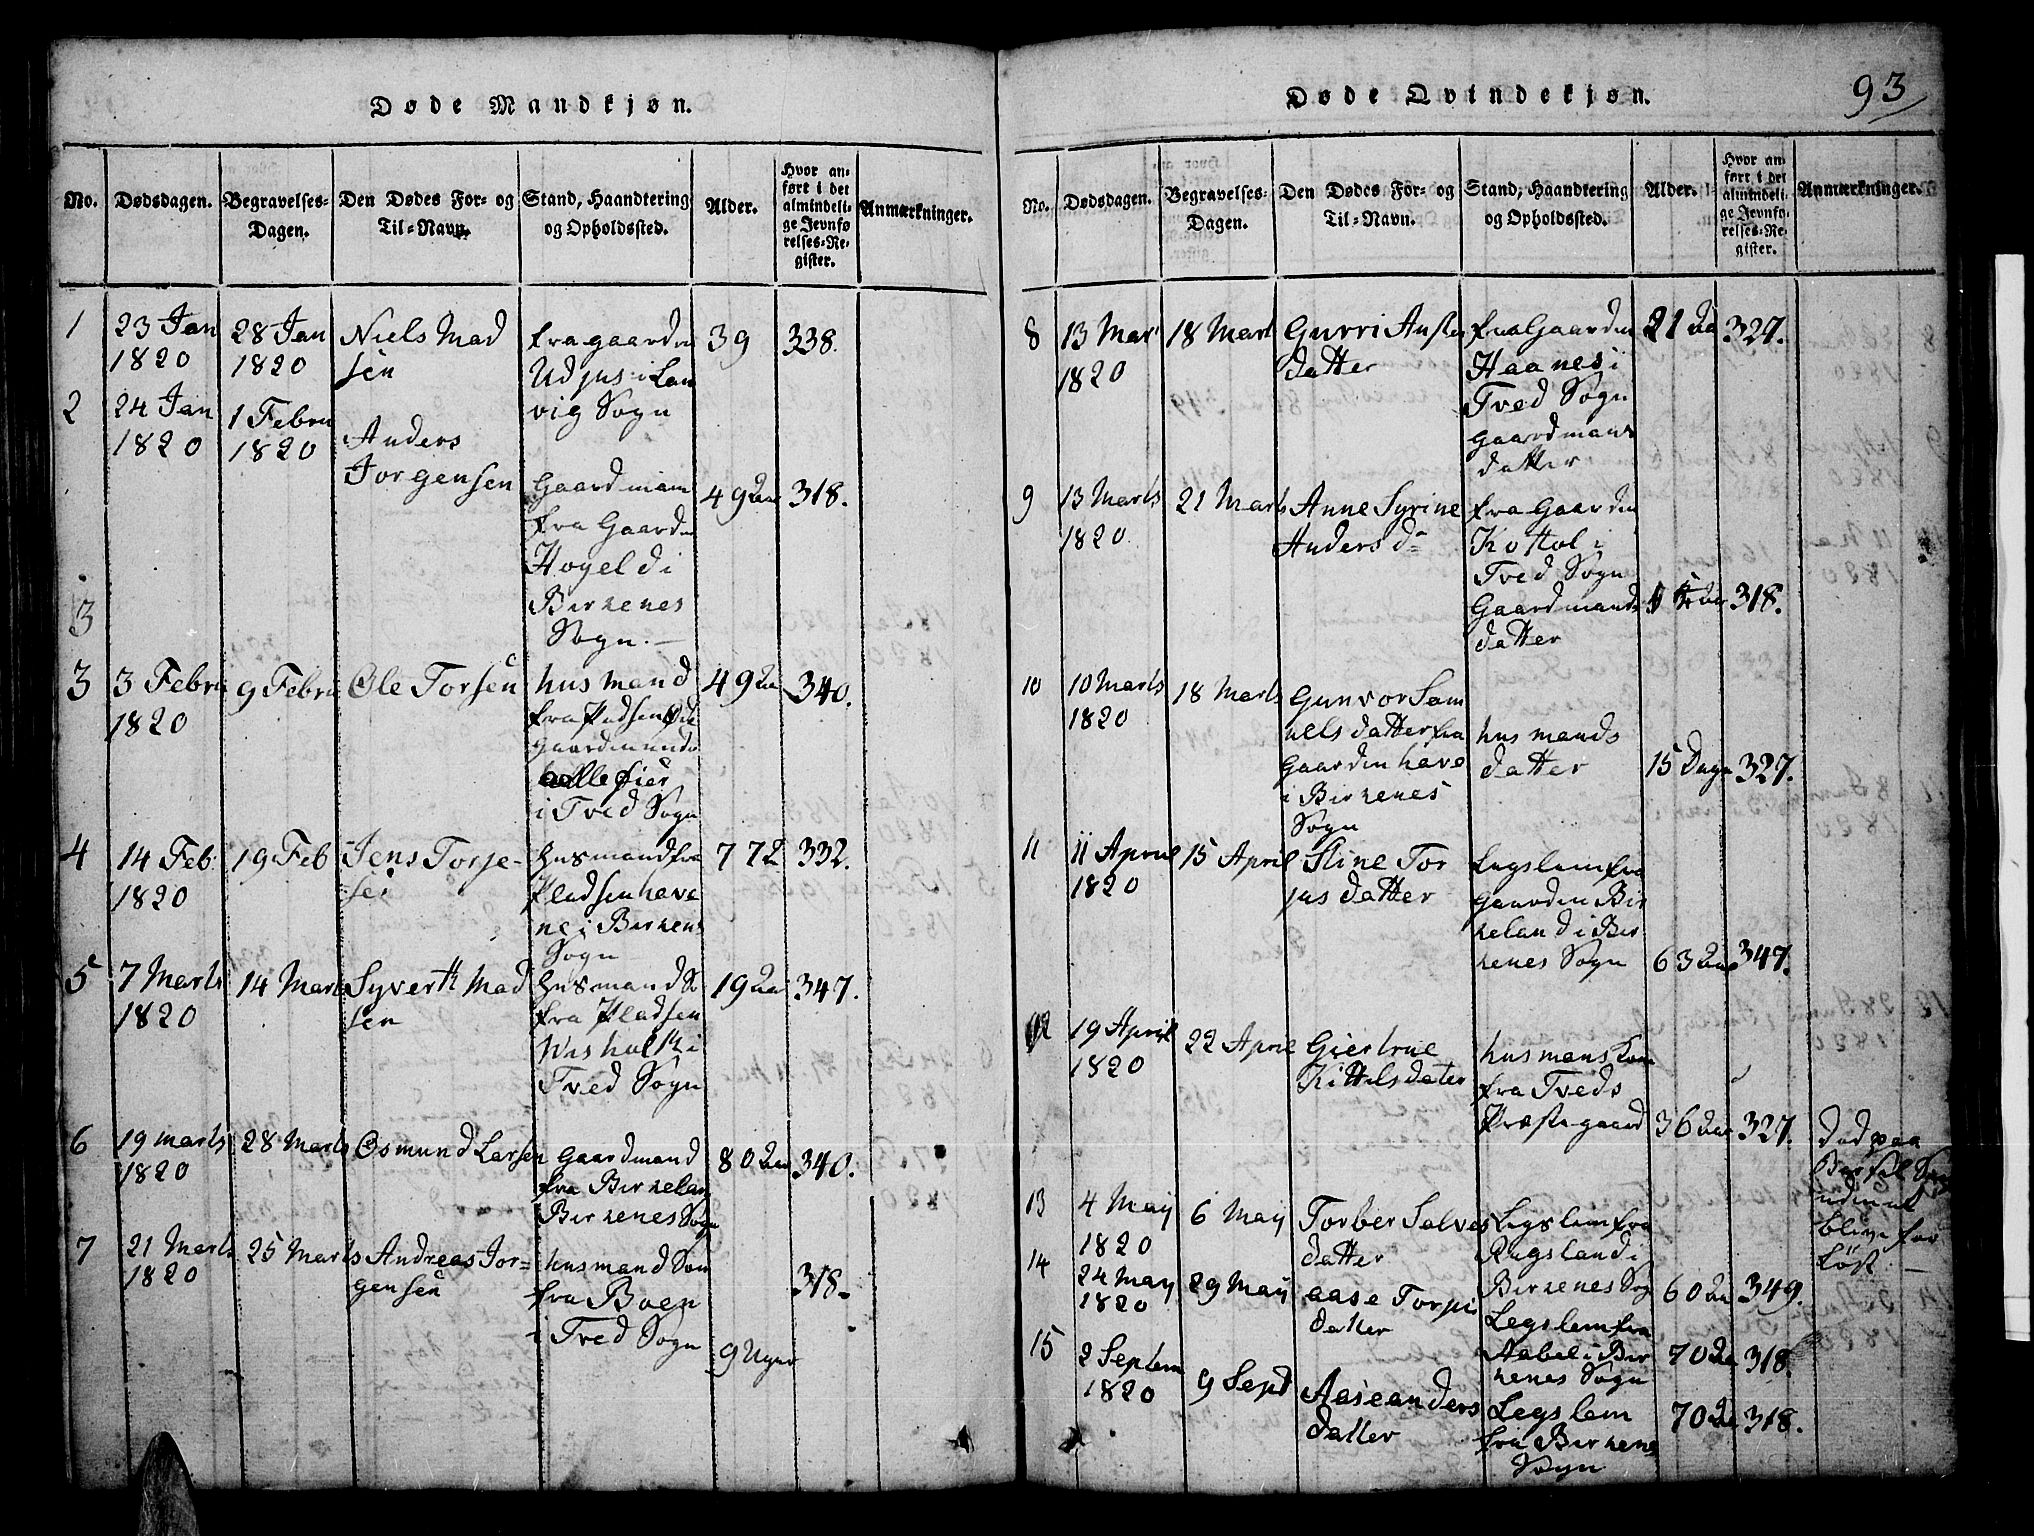 Døde Mandkjøn.
No.
Dødsdagen.
Begravelses-
Dagen.
Den Dødes For- og
Til-Navn.
Stand, Haandtering
og Opholdssted.
Alder.
Hvor an-
ført i det
almindeli-
ge Jevnfø
relses-Re-
gister.
Anmærkninger.
1
23 Jan
1820
28 Jan
1820
Niels Mad
sen
fra gaarden
Udjus i Lan
vig Sogn
39
338.
2
24 Jan
1820
1 Febru
1820
Anders
Jorgensen
Gaardman
fra Gaarden
Hogeld i
Birkenes
Sogn.
49 Aar
318.
3
3
3 Febru
1820
9 Febru
Ole Torsen
husmand
fra Pladsen
gaardmunds
øier
i Tved Sogn
49 Aar
340.
4
14 Feb:
1820
19 Feb
Jens Torje-
sen
Husmand fra
Pladsen have
ne i Birkenes
Sogn
72
332.
5
7 Marts
1820
14 Marts
Syvertt Mad
sen
Husmand S
fra Pladsen
i
Tved Sogn
19 Aar
347.
6
19 marts
1820
28 Marts
Osmund Larsen
Gaardmand
fra Birkeland
Birkenes Sogn
80 Aar
340.
7
21 Marts
1820
25 Marts
Andreas Jor-
gensen
husmand Søn
fra Boen
i Tved Sogn
9 Uger
318.
Døde Qvindekjøn.
93
No.
Dødsdagen.
Begravelses-
Dagen.
Den Dødes For- og
Til-Navn.
Stand, Haandtering
og Opholdssted.
Alder.
Hvor an-
ført i det
almindeli-
ge Jevnfø-
relses-Re-
gister.
Anmærkninger.
8
13 Mar
1820
18 Mart
Gurri Austen
datter
fra Gaarden
Haanes i
Tved Sogn
Gaardmans
datter
21 Aa
327.
9
13 Marts
1820.
21 Marts
Anne Syrine
Anders d
fra Gaarden
Kottol i
Tved Sogn
Gaardmands
datter
318.
10
10 Marts
1820
18 Marts
Gunvor Sam
uels datter fra
Gaarden have
i Birkenes
Sogn
husmands
datter
15 Dage
327.
11
11 April
1820
15 April
Stine Tor
jus datter
Legslem fra
gaarden Bir
keland i Bir
kenes Sogn
63 Aar
347.
12
19 April
1820
22 April
Giertrue
Kittilsdater
husmans Kone
fra Tveds
Præstegaard
36 Aar
327.
Død paa
Barsel Seng
uden at
blive for
Løst.
13
4 Maij
1820
6 Maij
Torber Salves
datter
Legslem fra
Rugsland i
Birkenes Sog
60 Aar
349.
14
24 Maij
1820
29 Maij
aase Torju
datter
Legslem fra
Aabel i Bir
kenes Sogn
70 Aa
318.
15
2 Septem
1820
9 Sept
Aase anders
datter
Legslem
fra Birkenes
Sogn
70 Aa
318.